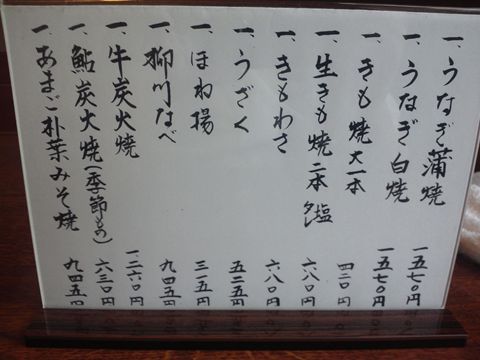 一、うなぎ蒲焼 一五七〇円
一、うなぎ白焼 一五七〇円
一、きも焼大一本 四二〇円
一、生きも焼二本 タレ塩 六八〇円
一、きもわさ 六八〇円
一、うざく 五二五円
一、ほね揚 三一五円
一、柳川なべ 九四五円
一、牛炭火焼 一二六〇円
一、鮎炭火焼(季節もの) 六三〇円
一、あまご朴葉みそ焼 九四五円